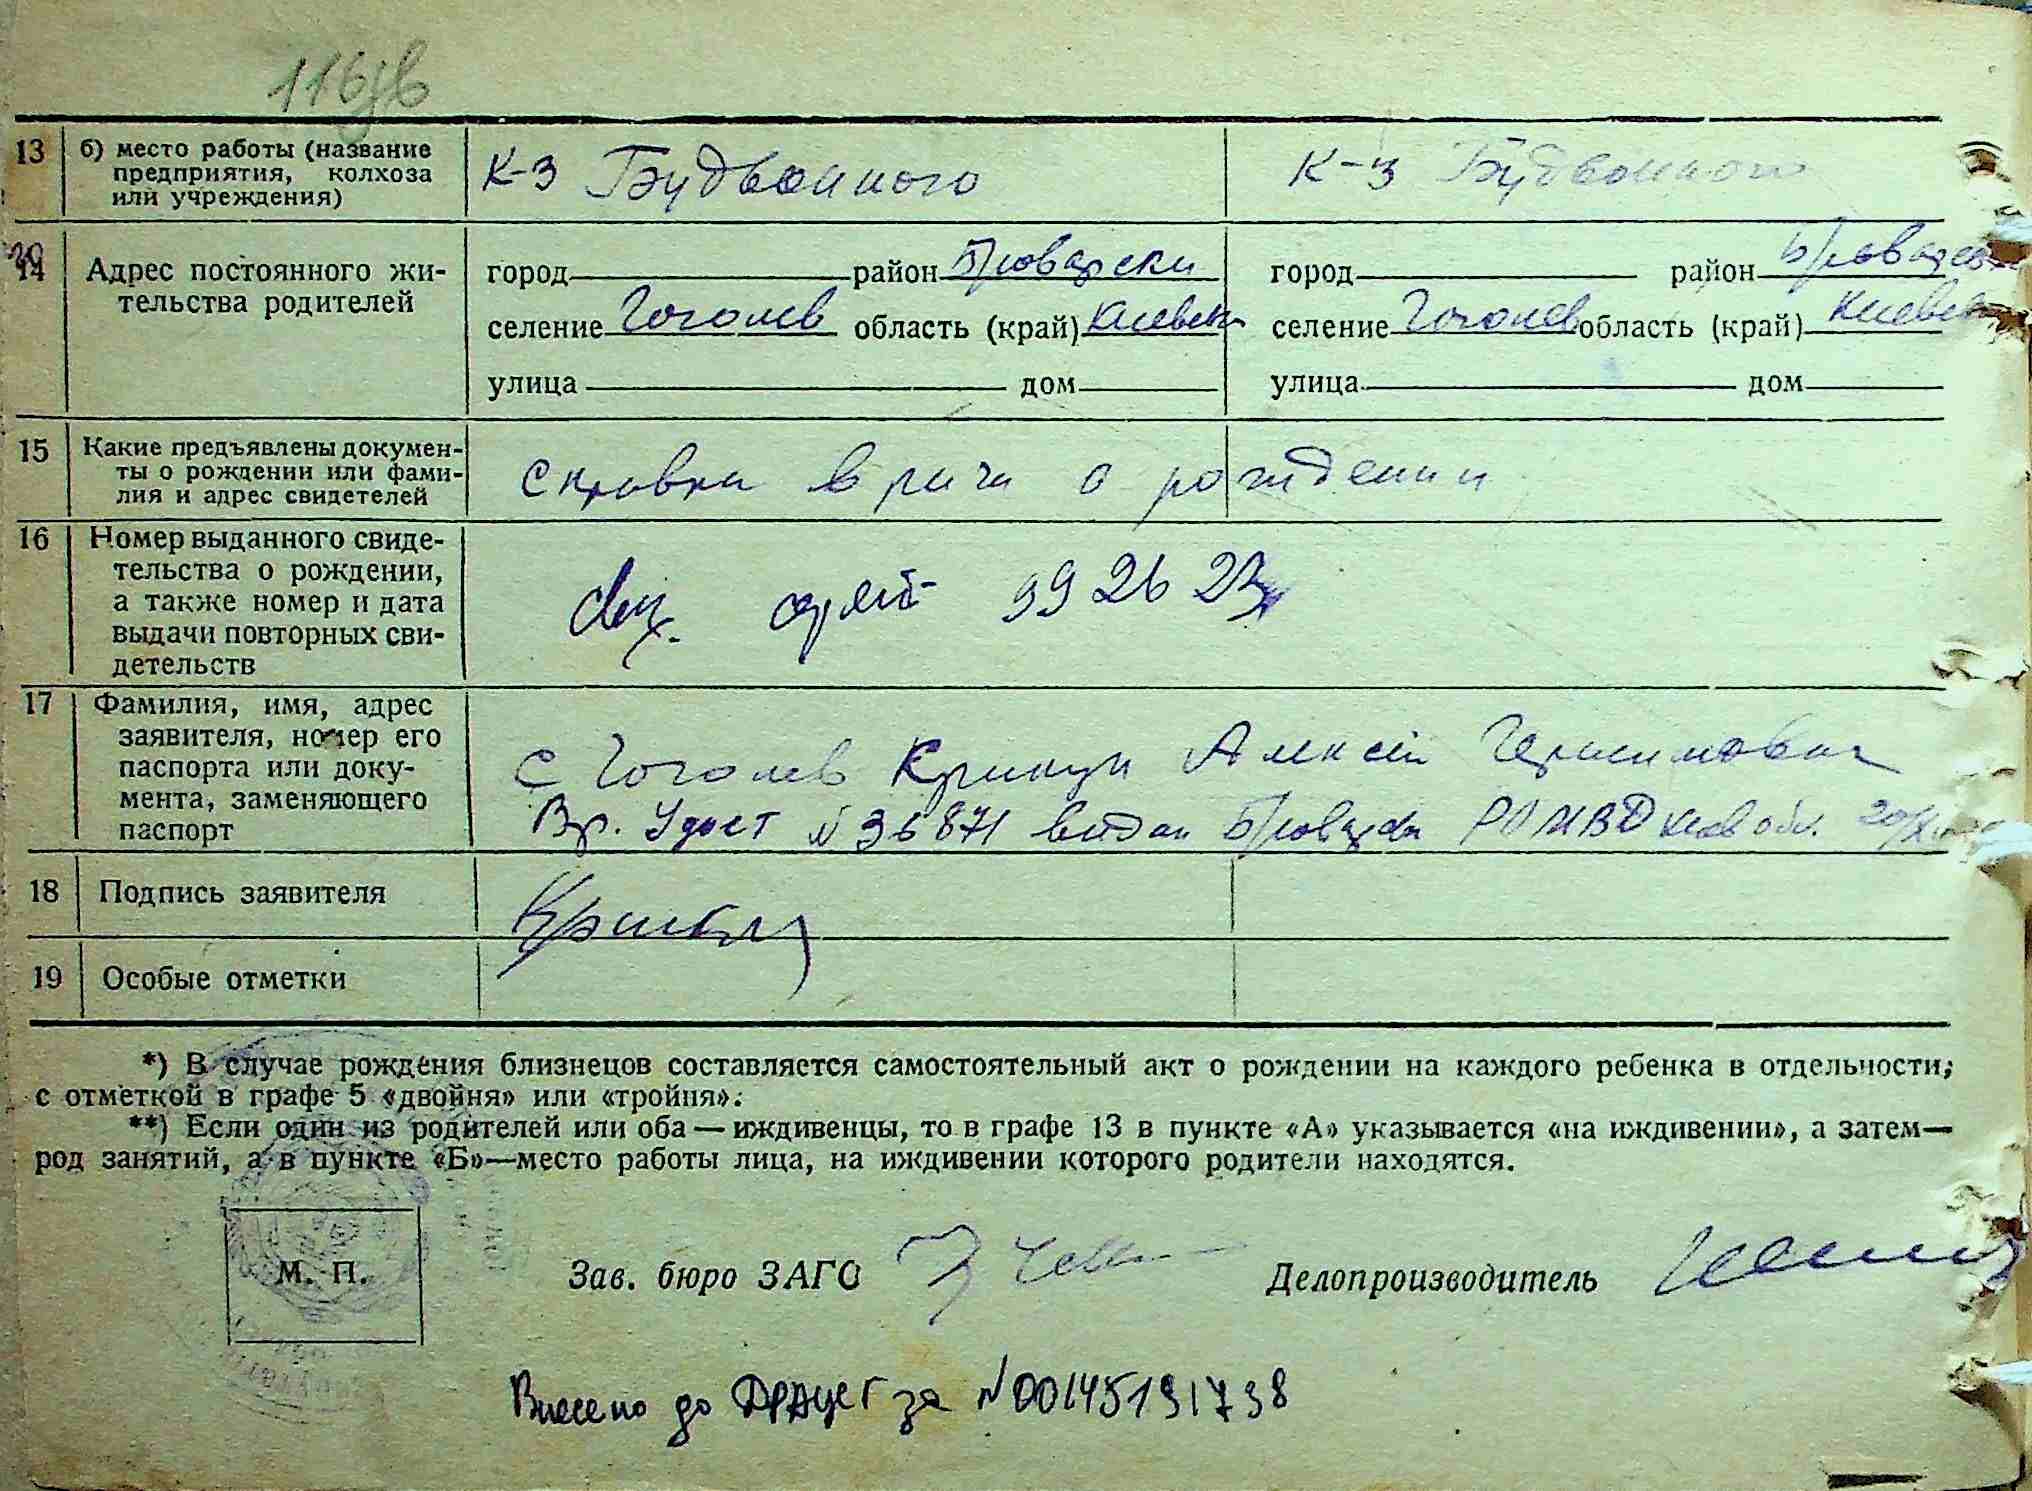 13 б) место работы (название предприятия, колхоза или учреждения)
К-З Будвонного К-З Будвонного
14 Адрес постоянного жительства родителей
город район Броварски город район
селение Гоголев область (край) Киевск селение Гоголев область (край) Киевск
улица дом улица дом
15 Какие предъявлены документы о рождении или фамилия и адрес свидетелей
Справка врача о рождении
16 Номер выданного свидетельства о рождении, а также номер и дата выдачи повторных свидетельств
992623
17 Фамилия, имя, адрес заявителя, номер его паспорта или документа, заменяющего паспорт
с Гоголев Алексей Герасимович
Вр. Удост N 36871 видан РОМВД
18 Подпись заявителя
19 Особые отметки
*) В случае рождения близнецов составляется самостоятельный акт о рождении на каждого ребенка в отдельности,
с отметкой в графе 5 «двойня» или «тройня».
**) Если один из родителей или оба — иждивенцы, то в графе 13 в пункте «А» указывается «на иждивении», а затем—
род занятий, а в пункте «Б»—место работы лица, на иждивении которого родители находятся.
М. П.
Зав. бюро ЗАГС Делопроизводитель
Внесено до ДРАЦСГ за N00145191738